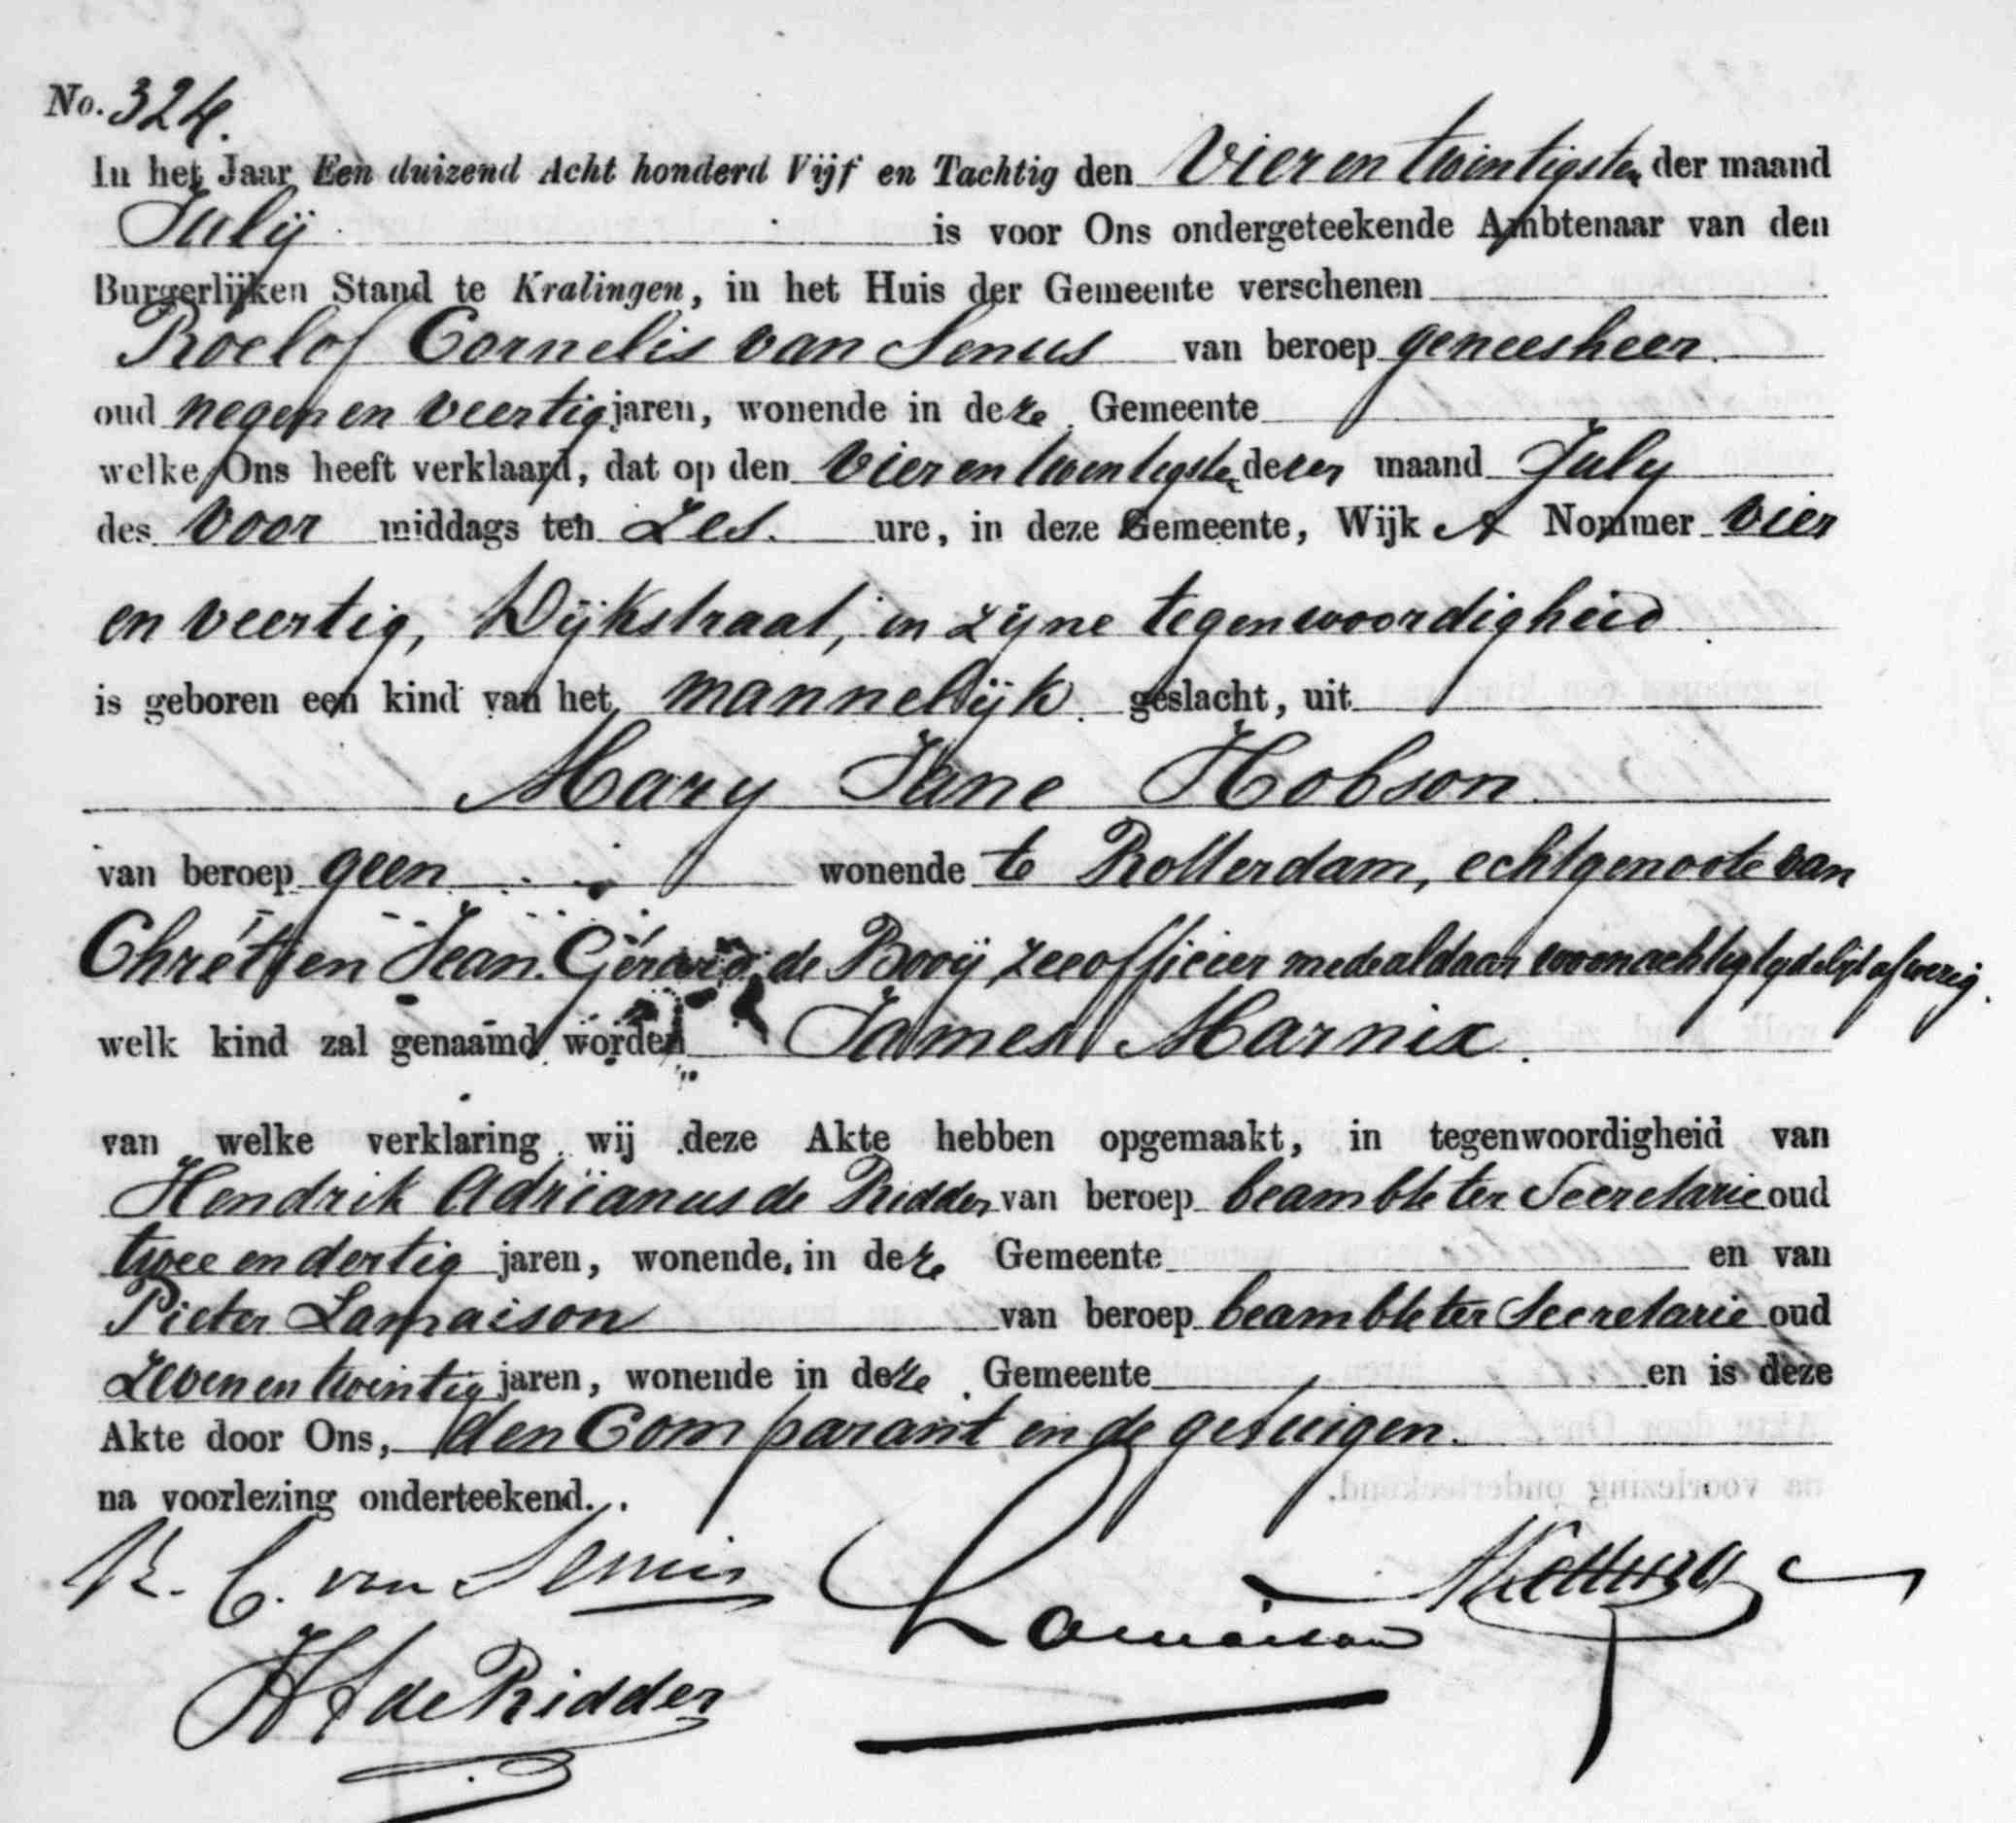 No. 324.
In het Jaar Een duizend Acht honderd Vijf en Tachtig den Vier en twintigsten der maand
Julij is voor Ons ondergeteekende Ambtenaar van den
Burgerlijken Stand te Kralingen, in het Huis der Gemeente verschenen
Roelof Cornelis van Senus van beroep geneesheer
oud negen en veertig jaren, wonende in deze Gemeente
welke Ons heeft verklaard, dat op den vier en twentigsten dezer maand July
des voor middags ten zes. ure, in deze Gemeente, Wijk A Nommer vier
en veertig, Dijkstraat, in zijne tegenwoordigheid
is geboren een kind van het mannelijk geslacht, uit
Mary Jane Hobson
van beroep geen wonende te Rotterdam, echtgenoote van
Chrétien Jean Gérard de Booij, zeeofficier mede aldaar woonachtig tydelijk afwezig.
welk kind zal genaamd worden James Marnix.
van welke verklaring wij deze Akte hebben opgemaakt, in tegenwoordigheid van
Hendrik Adrianus de Ridder van beroep beambte ter Secretarie oud
twee en dertig jaren, wonende in deze Gemeente en van
Pieter Lamaison van beroep beambte ter Secretarie oud
zeven en twintig jaren, wonende in deze Gemeente en is deze
Akte door Ons, den Comparant en de getuigen.
na voorlezing onderteekend.
R. C. van Senus
Lamaison
HA de Ridder